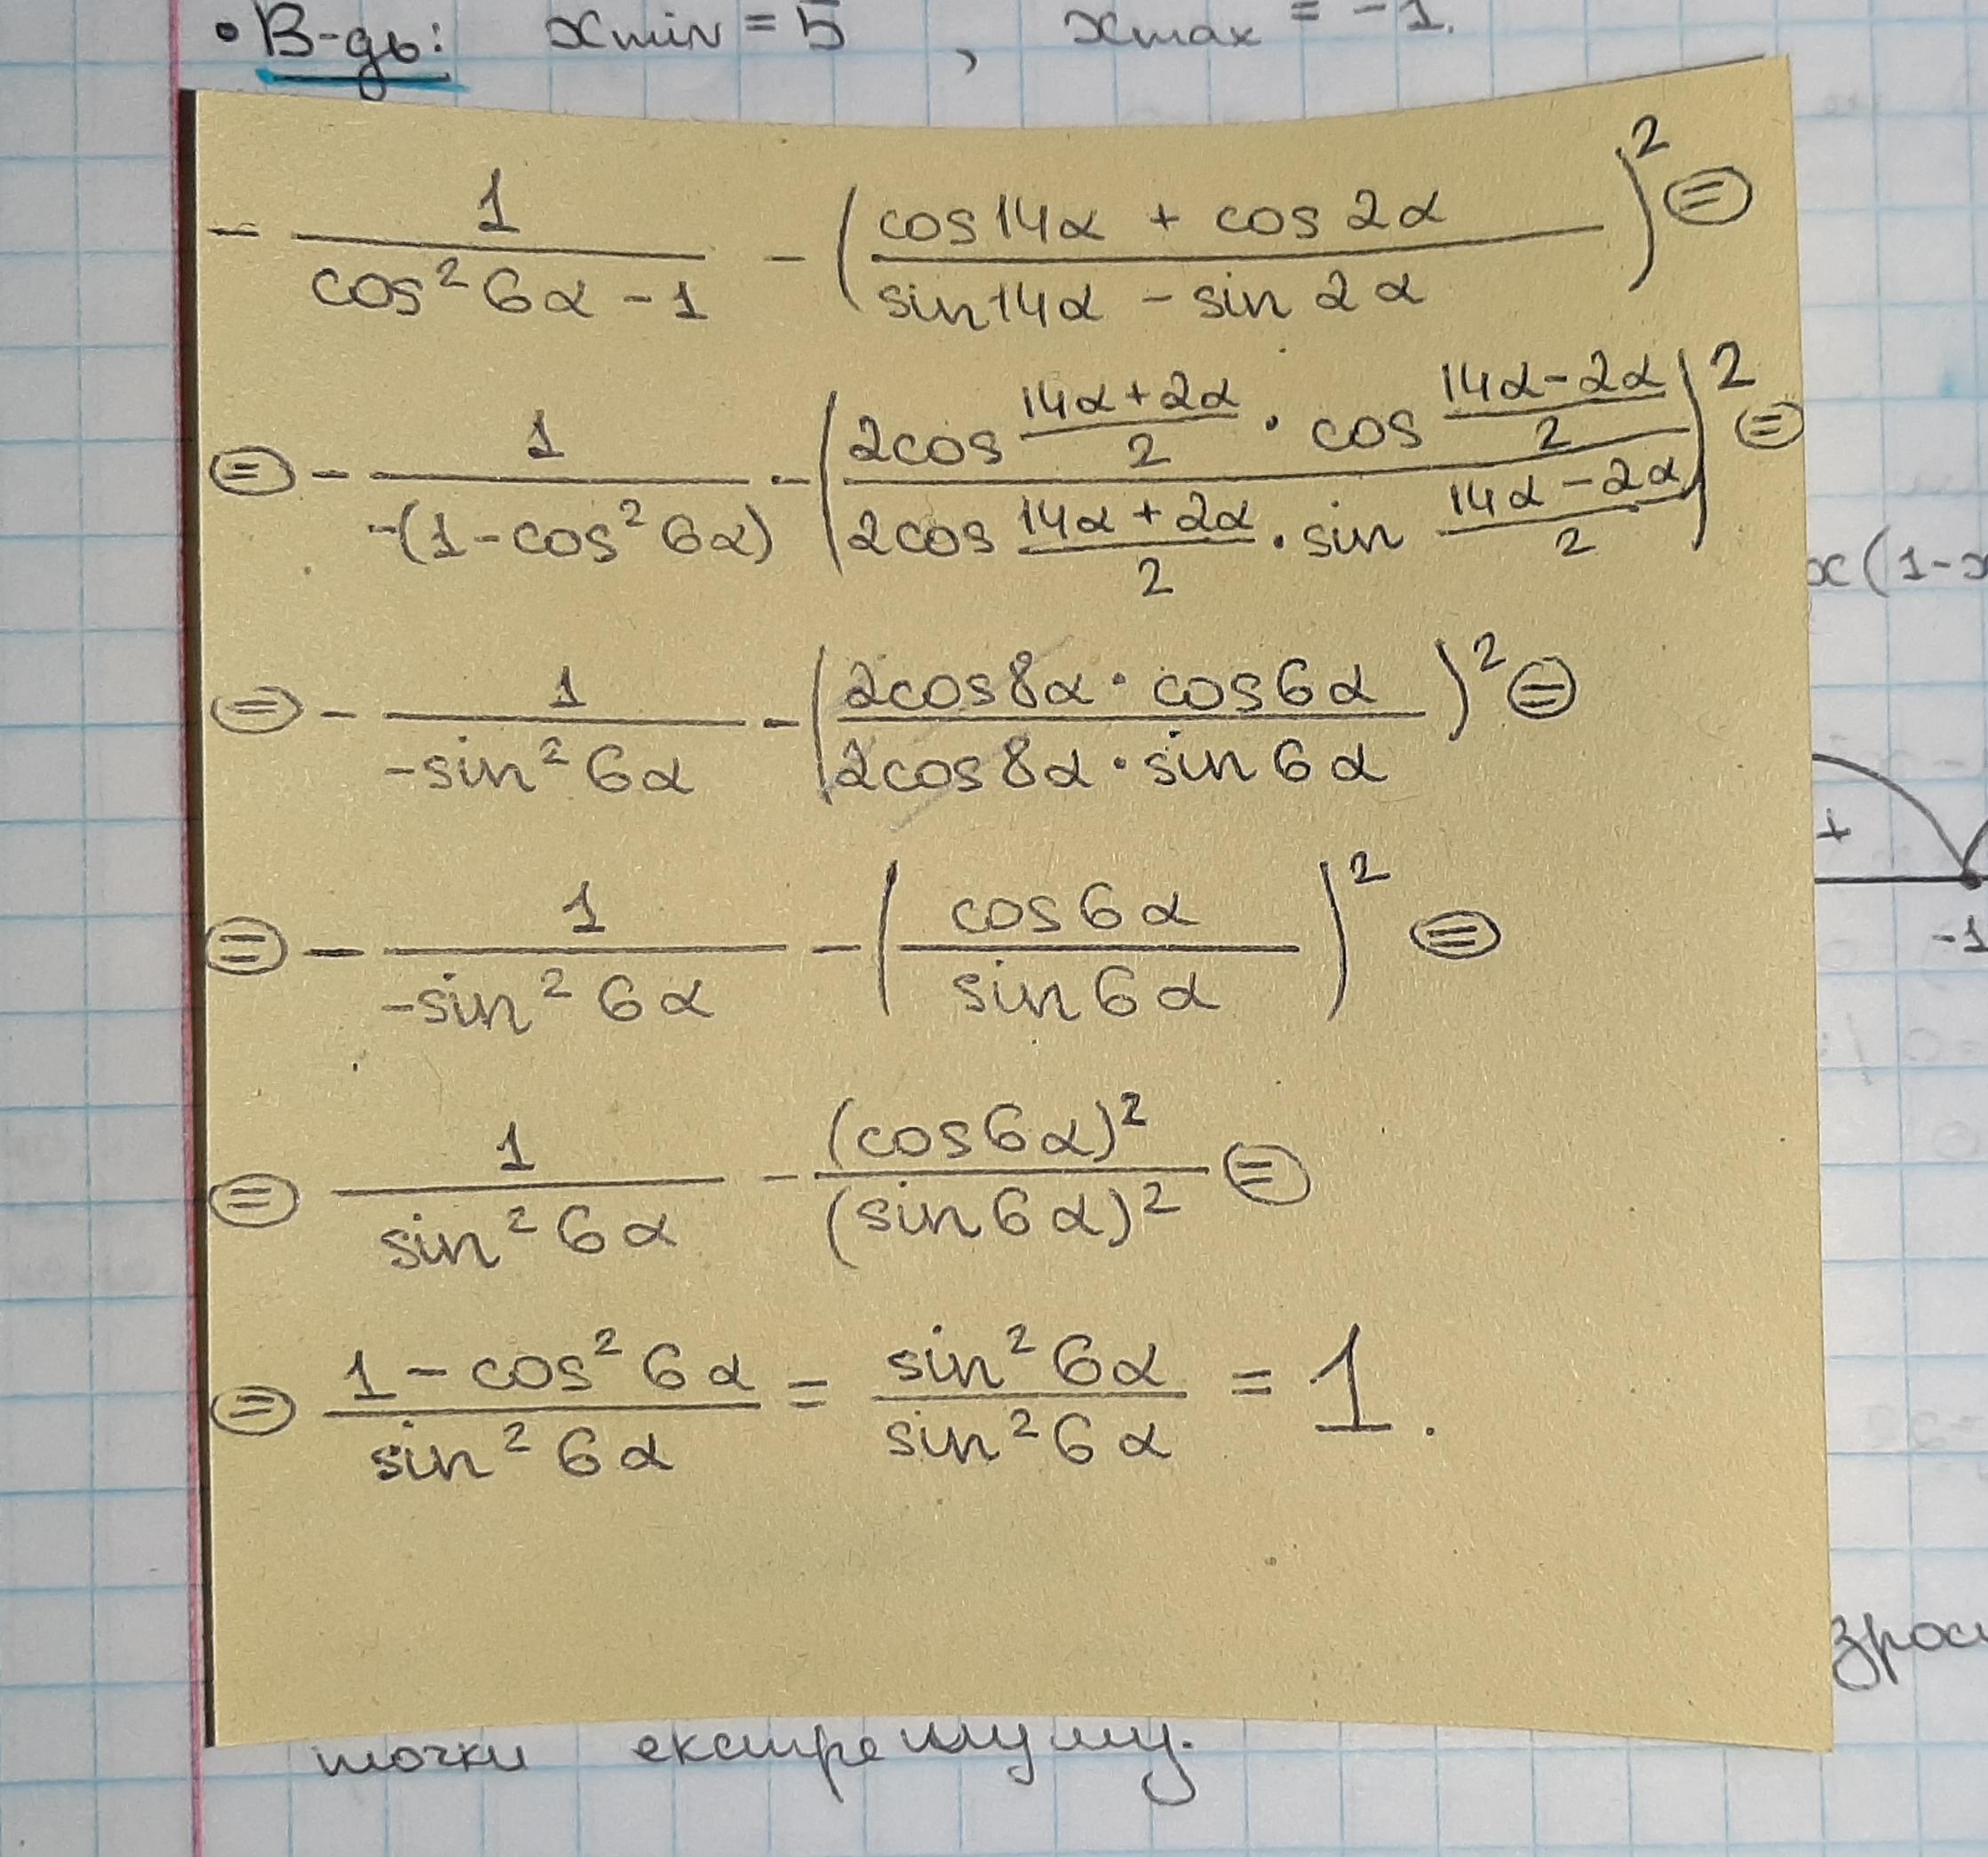 • В-дь: xmin = 5 , xmax = -1.
- 1/(cos²6α - 1) - ((cos14α + cos2α)/(sin14α - sin2α))² ⊜
⊜ - 1/(-(1 - cos²6α)) - ((2cos (14α + 2α)/2 · cos (14α - 2α)/2)/(2cos (14α + 2α)/2 · sin (14α - 2α)/2))² ⊜
x(1-
⊜ - 1/(-sin²6α) - ((2cos8α · cos6α)/(2cos8α · sin6α))² ⊜
+
⊜ - 1/(-sin²6α) - (cos6α/sin6α)² ⊜
-1
⊜ 1/(sin²6α) - (cos6α)²/(sin6α)² ⊜
⊜ (1 - cos²6α)/(sin²6α) = (sin²6α)/(sin²6α) = 1.
точки екстремуму.